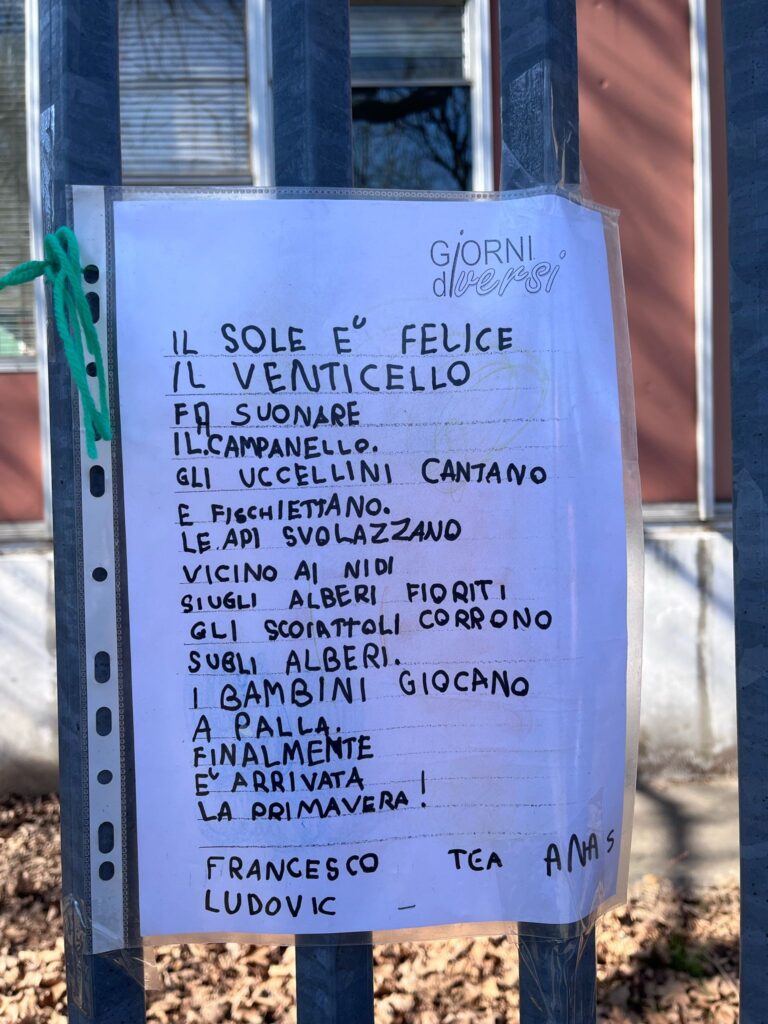 GiORNI
diversi
IL SOLE E˘ FELICE
IL VENTICELLO
FA SUONARE
IL.CAMPANELLO.
GLI UCCELLINI CANTANO
E FISCHIETTANO.
LE.API SVOLAZZANO
VICINO AI NIDI
SIUGLI ALBERI FIORITI
GLI SCOIATTOLI CORRONO
SUGLI ALBERI.
I BAMBINI GIOCANO
A PALLA.
FINALMENTE
E˘ ARRIVATA
LA PRIMAVERA!
FRANCESCO TEA ANAS
LUDOVIC –